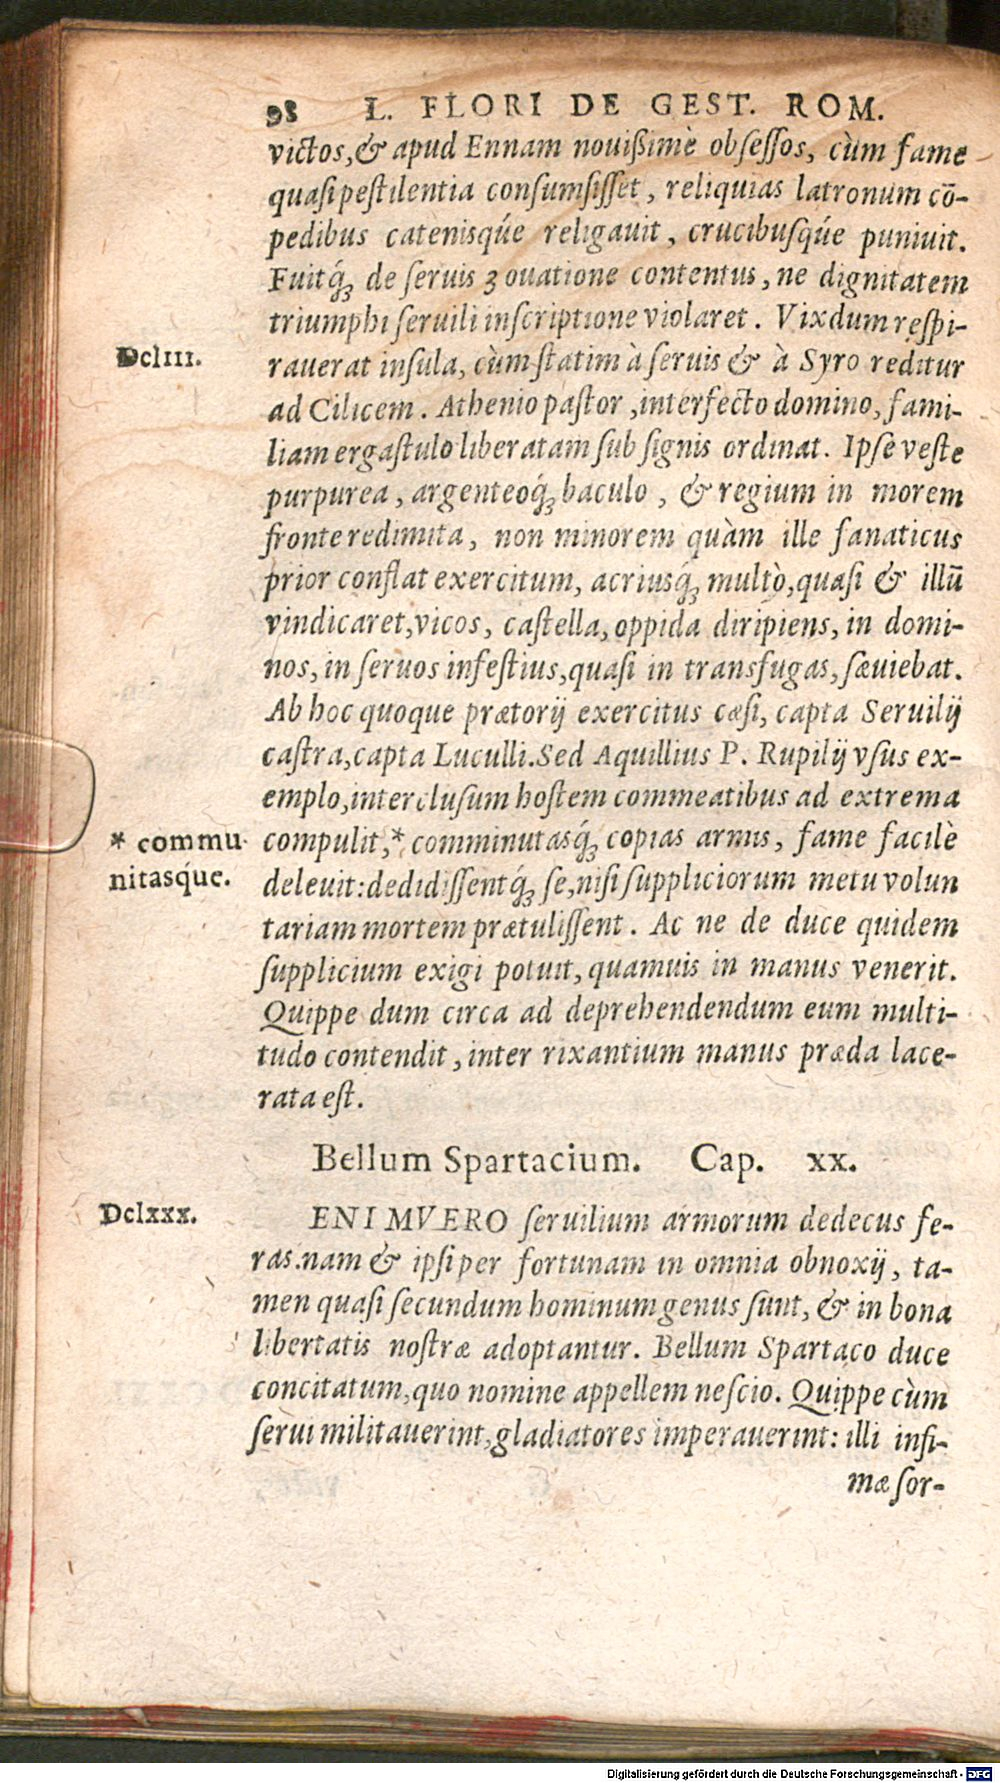 98 L. FLORI DE GEST. ROM.
victos,& apud Ennam nouißimè obsessos, cùm fame
quasi pestilentia consumsisset, reliquias latronum cō-
pedibus catenisq́ue religauit, crucibusq́ue puniuit.
Fuitq́ꝫ de seruis ʒ ouatione contentus, ne dignitatem
triumphi seruili inscriptione violaret. Vixdum respi-
Dcliii.
rauerat insula, cùm statim à seruis & à Syro reditur
ad Cilicem. Athenio pastor, interfecto domino, fami-
liam ergastulo liberatam sub signis ordinat. Ipse veste
purpurea, argenteoq́ꝫ baculo, & regium in morem
fronte redimita, non minorem quàm ille fanaticus
prior conflat exercitum, acriusq́ꝫ multò, quasi & illū
vindicaret, vicos, castella, oppida diripiens, in domi-
nos, in seruos infestius, quasi in transfugas, sæuiebat.
Ab hoc quoque prætorij exercitus cæsi, capta Seruilij
castra, capta Luculli. Sed Aquillius P. Rupilij vsus ex-
emplo, interclusum hostem commeatibus ad extrema
* commu
nitasq́ue.
compulit,* comminutasq́ꝫ copias armis, fame facilè
deleuit: dedidissentq́ꝫ se, nisi suppliciorum metu volun
tariam mortem prætulissent. Ac ne de duce quidem
supplicium exigi potuit, quamuis in manus venerit.
Quippe dum circa ad deprehendendum eum multi-
tudo contendit, inter rixantium manus præda lace-
rata est.
Bellum Spartacium. Cap. xx.
Dclxxx.
ENIMVERO seruilium armorum dedecus fe-
ras. nam & ipsi per fortunam in omnia obnoxij, ta-
men quasi secundum hominum genus sunt, & in bona
libertatis nostræ adoptantur. Bellum Spartaco duce
concitatum, quo nomine appellem nescio. Quippe cùm
serui militauerint, gladiatores imperauerint: illi infi-
mæ sor-
Digitalisierung gefördert durch die Deutsche Forschungsgemeinschaft - DFG